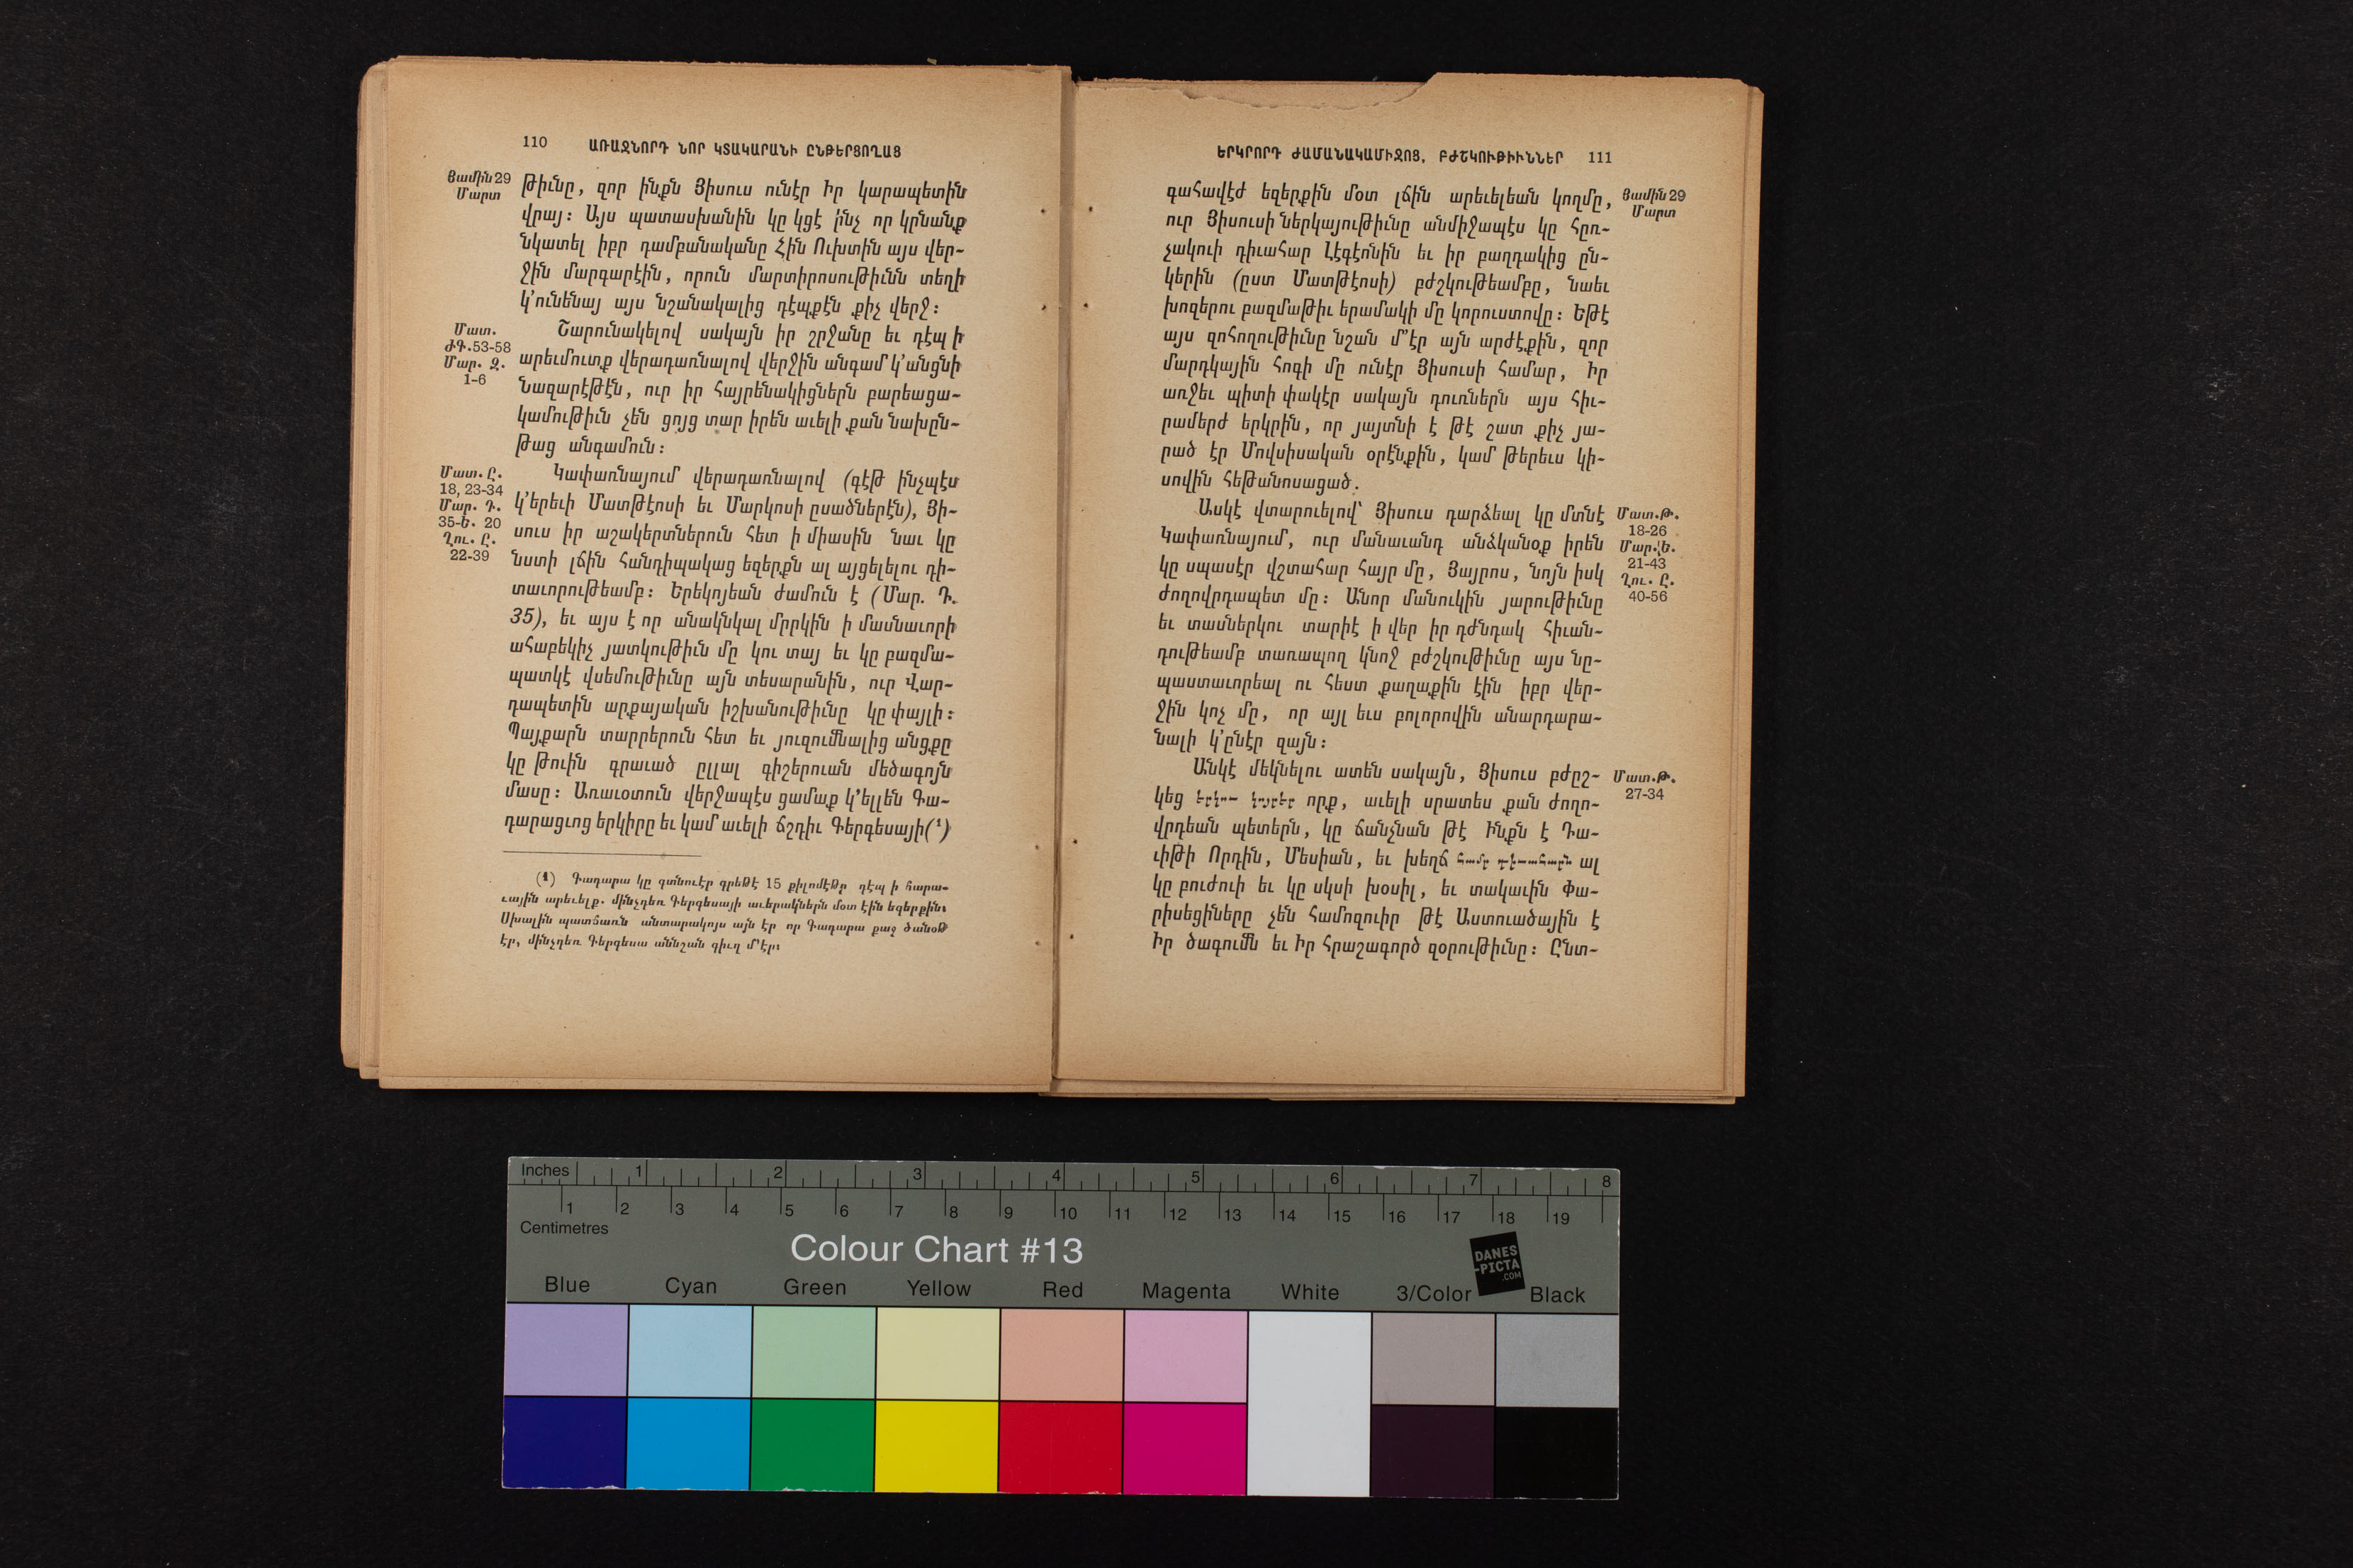 110 ԱՌԱՋՆՈՐԴ ՆՈՐ ԿՏԱԿԱՐԱՆԻ ԸՆԹԵՐՑՈՂԱՑ
Յամին 29
Մարտ
թիւնը, զոր ինքն Յիսուս ունէր Իր կարապետին
վրայ։ Այս պատասխանին կը կցէ ինչ որ կրնանք
նկատել իբր դամբանականը Հին Ուխտին այս վեր-
ջին մարգարէին, որուն մարտիրոսութիւնն տեղի
կ’ունենայ այս նշանակալից դէպքէն քիչ վերջ։
Մատ.
ԺԳ.53-58
Մար. Զ.
1-6
Շարունակելով սակայն իր շրջանը եւ դէպ ի
արեւմուտք վերադառնալով վերջին անգամ կ’անցնի
Նազարէթէն, ուր իր հայրենակիցներն բարեացա-
կամութիւն չեն ցոյց տար իրեն աւելի քան նախըն-
թաց անգամուն։
Մատ. Ը.
18, 23-34
Մար. Դ.
35-Ե. 20
Ղու. Ը.
22-39
Կափառնայում վերադառնալով (գէթ ինչպէս
կ’երեւի Մատթէոսի եւ Մարկոսի ըսածներէն), Յի-
սուս իր աշակերտներուն հետ ի միասին նաւ կը
նստի լճին հանդիպակաց եզերքն ալ այցելելու դի-
տաւորութեամբ։ Երեկոյեան ժամուն է (Մար. Դ.
35), եւ այս է որ անակնկալ մրրկին ի մասնաւորի
ահաբեկիչ յատկութիւն մը կու տայ եւ կը բազմա-
պատկէ վսեմութիւնը այն տեսարանին, ուր Վար-
դապետին արքայական իշխանութիւնը կը փայլի։
Պայքարն տարրերուն հետ եւ յուզումնալից անցքը
կը թուին գրաւած ըլլալ գիշերուան մեծագոյն
մասը։ Առաւօտուն վերջապէս ցամաք կ’ելլեն Գա-
դարացւոց երկիրը եւ կամ աւելի ճշդիւ Գերգեսայի(¹)
(1) Գադարա կը գտնուէր գրեթէ 15 քիլոմէթր դէպ ի հարա-
ւային արեւելք. մինչդեռ Գերգեսայի աւերակներն մօտ էին եզերքին։
Սխալին պատճառն անտարակոյս այն էր որ Գադարա քաջ ծանօթ
էր, մինչդեռ Գերգեսա աննշան գիւղ մ’էր։
ԵՐԿՐՈՐԴ ԺԱՄԱՆԱԿԱՄԻՋՈՑ, ԲԺՇԿՈՒԹԻՒՆՆԵՐ 111
Յամին 29
Մարտ
գահավէժ եզերքին մօտ լճին արեւելեան կողմը,
ուր Յիսուսի ներկայութիւնը անմիջապէս կը հըռ-
չակուի դիւահար Լէգէոնին եւ իր բաղդակից ըն-
կերին (ըստ Մատթէոսի) բժշկութեամբը, նաեւ
խոզերու բազմաթիւ երամակի մը կորուստովը։ Եթէ
այս զոհողութիւնը նշան մ’էր այն արժէքին, զոր
մարդկային հոգի մը ունէր Յիսուսի համար, Իր
առջեւ պիտի փակէր սակայն դուռներն այս հիւ-
րամերժ երկրին, որ յայտնի է թէ շատ քիչ յա-
րած էր Մովսիսական օրէնքին, կամ թերեւս կի-
սովին հեթանոսացած.
Մատ.Թ.
18-26
Մար.Ե.
21-43
Ղու. Ը.
40-56
Ասկէ վտարուելով՝ Յիսուս դարձեալ կը մտնէ
Կափառնայում, ուր մանաւանդ անձկանօք իրեն
կը սպասէր վշտահար հայր մը, Յայրոս, նոյն իսկ
ժողովրդապետ մը։ Անոր մանուկին յարութիւնը
եւ տասներկու տարիէ ի վեր իր դժնդակ հիւան-
դութեամբ տառապող կնոջ բժշկութիւնը այս նը-
պաստաւորեալ ու հեստ քաղաքին էին իբր վեր-
ջին կոչ մը, որ այլ եւս բոլորովին անարդարա-
նալի կ’ընէր զայն։
Մատ.Թ.
27-34
Անկէ մեկնելու ատեն սակայն, Յիսուս բժըշ-
կեց երկու կոյրեր որք, աւելի սրատես քան ժողո-
վրդեան պետերն, կը ճանչնան թէ Ինքն է Դա-
ւիթի Որդին, Մեսիան, եւ խեղճ համր դիւահարն ալ
կը բուժուի եւ կը սկսի խօսիլ, եւ տակաւին Փա-
րիսեցիները չեն համոզուիր թէ Աստուածային է
Իր ծագումն եւ Իր հրաշագործ զօրութիւնը։ Ընտ-
Inches 1 2 3 4 5 6 7 8
1 2 3 4 5 6 7 8 9 10 11 12 13 14 15 16 17 18 19
Centimetres
Colour Chart #13
DANES
-PICTA
.COM
Blue Cyan Green Yellow Red Magenta White 3/Color Black